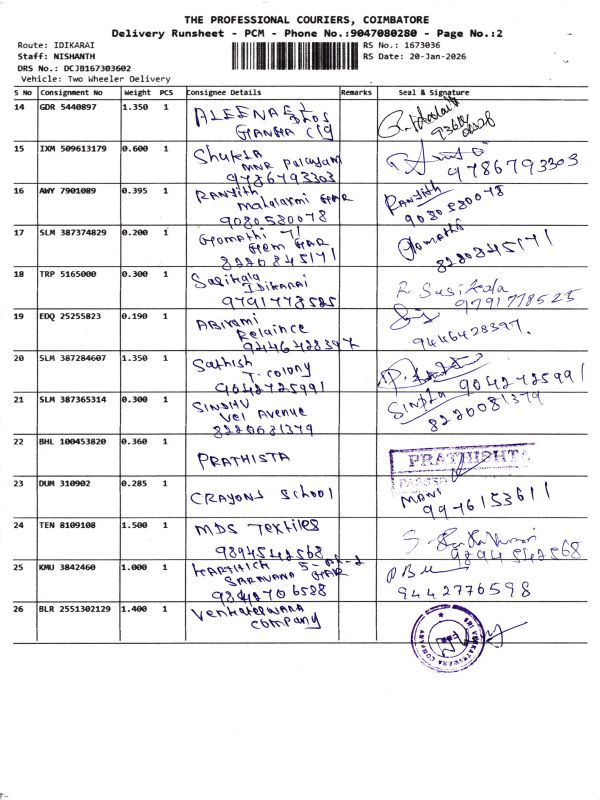 THE PROFESSIONAL COURIERS, COIMBATORE
Delivery Runsheet - PCM - Phone No.:9047080280 - Page No.:2
Route: IDIKARAI RS No.: 1673036
Staff: NISHANTH RS Date: 20-Jan-2026
DRS No.: DCJB167303602
Vehicle: Two Wheeler Delivery
S No Consignment No Weight PCS Consignee Details Remarks Seal & Signature
14 GDR 5440897 1.350 1 ALEENA
GANGA
15 IXM 509613179 0.600 1 Shukla
MNR Palayam
9786793303 9786793303
16 AWY 7901089 0.395 1 Ranjith Ranjith
Mahalaxmi GAR
9080580078 9080580078
17 SLM 387374829 0.200 1 Gomathi 71 Gomathi
Gem GAR
8220845171 8220845171
18 TRP 5165000 0.300 1 Sasikala
IDIKARAI
9791778525 9791778525
19 EDQ 25255823 0.190 1 ABIRAMI
Relaince
9446428397 9446428397.
20 SLM 387284607 1.350 1 Sathish
T. colony
9042725991 9042725991
21 SLM 387365314 0.300 1 SINDHU
Vel Avenue
8220081379 8220081379
22 BHL 100453820 0.360 1 PRATHISTA PRATHISHTA
23 DUM 310902 0.285 1 CRAYONS School MANI
9976153611
24 TEN 8109108 1.500 1 MDS Textiles
9894542568 9894542568
25 KMU 3842460 1.000 1 KARTHICK
SARAVANA GAR
9442776598
26 BLR 2551302129 1.400 1 Venkateswara
company